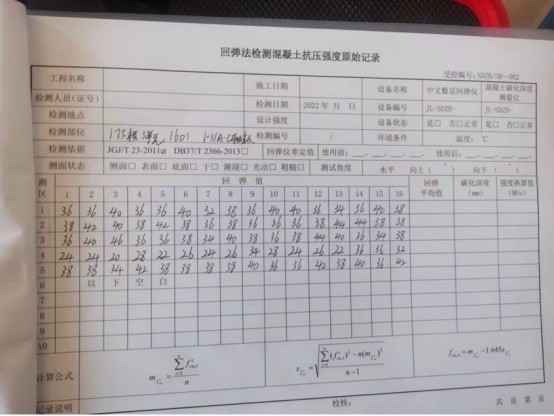 回弹法检测混凝土抗压强度原始记录
受控编号:SDZB/SR-002
工程名称 施工日期 设备名称 中文数显回弹仪 混凝土碳化深度测量仪
检测人员(证号) 检测日期 2022年 月 日 设备编号 JL-SDZB- JL-SDZB-
检测地点 设计强度 设备状态 是□ 否□正常 是□ 否□正常
检测部位 17#楼3单元1601 检测编号 / 环境条件 温度: ℃
检测依据 JGJ/T 23-2011□ DB37/T 2366-2013□ 回弹仪率定值 使用前: 使用后:
侧面状态 侧面□ 表面□ 底面□ 干□ 潮湿□ 光洁□ 粗糙□ 测试角度 水平 向上( ) 向下( )
测区 回弹值 回弹平均值 碳化深度(mm) 强度换算值(MPa)
1 2 3 4 5 6 7 8 9 10 11 12 13 14 15 16
1 36 36 40 36 36 40 32 38 36 40 40 36 34 36 40 38
2 38 42 40 38 42 38 36 38 36 36 36 38 44 44 38 38
3 36 40 46 36 36 38 34 40 38 36 38 44 40 36 34 38
4 24 24 20 28 22 26 24 26 34 28 24 26 22 36 36 32
5 38 38 34 42 38 38 38 38 40 36 36 42 38 40 36 42
6 以 下 空 白
7
8
9
10
计算公式
记录说明 校核: 共 页 第 页